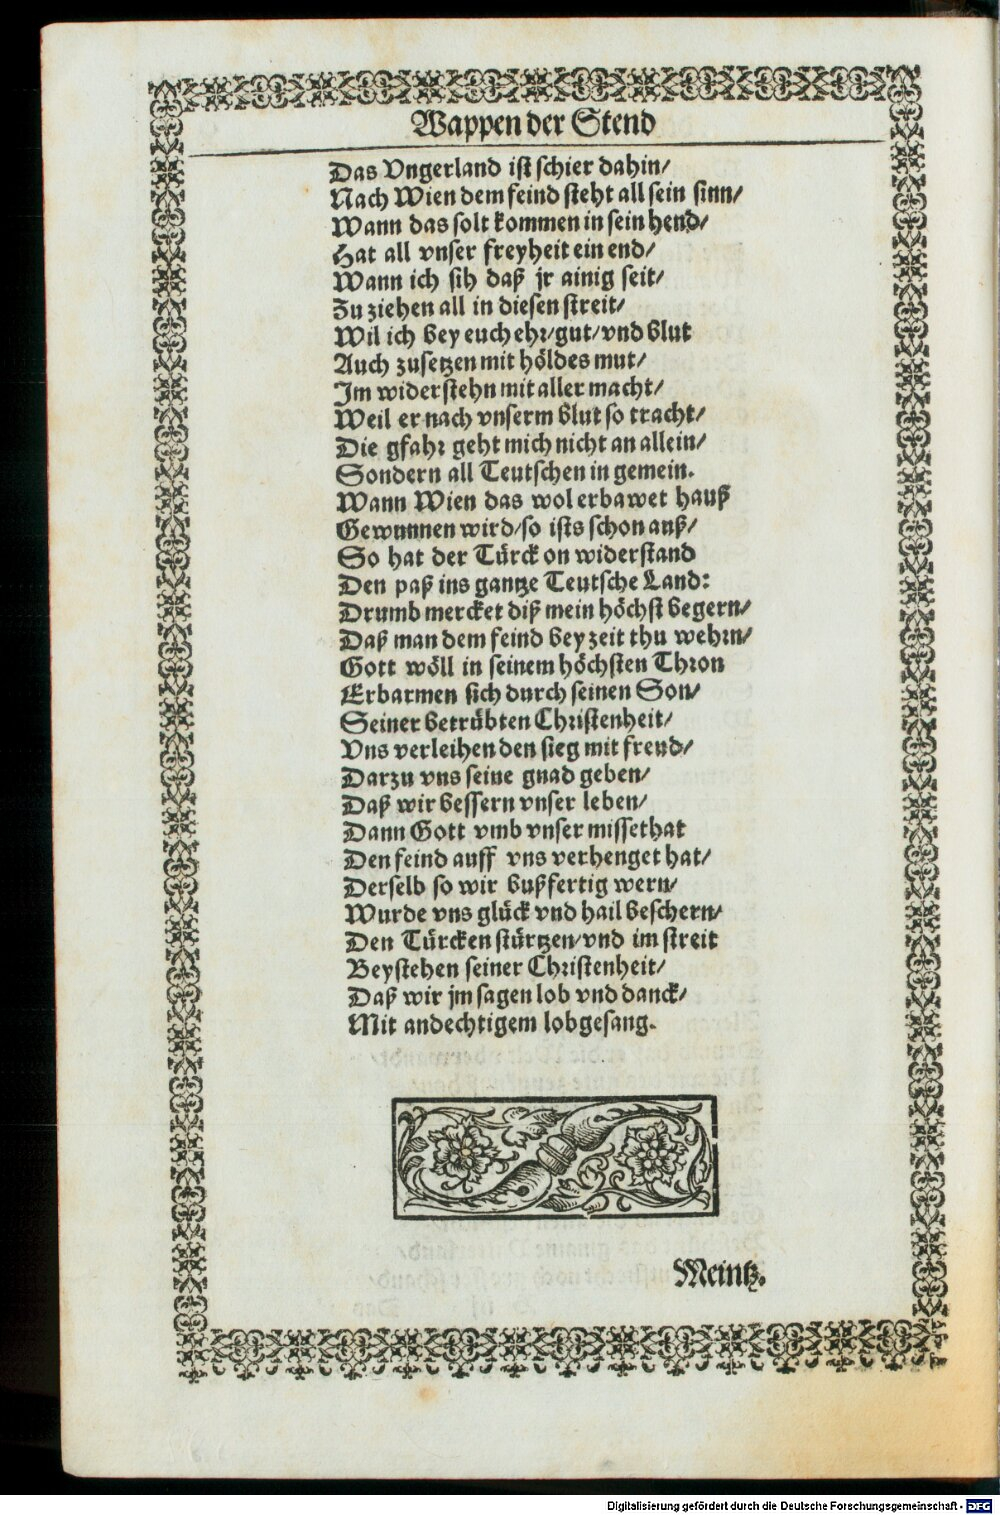 Wappen der Stend
Das Vngerland ist schier dahin/
Nach Wien dem feind steht all sein sinn/
Wann das solt kommen in sein hend/
Hat all vnser freyheit ein end/
Wann ich sih daß jr ainig seit/
Zu ziehen all in diesen streit/
Wil ich bey euch ehr/gut/vnd blut
Auch zusetzen mit höldes mut/
Im widerstehn mit aller macht/
Weil er nach vnserm blut so tracht/
Die gfahr geht mich nicht an allein/
Sondern all Teutschen in gemein.
Wann Wien das wol erbawet hauß
Gewunnen wird/so ists schon auß/
So hat der Türck on widerstand
Den paß ins gantze Teutsche Land:
Drumb mercket diß mein höchst begern/
Daß man dem feind bey zeit thu wehrn/
Gott wöll in seinem höchsten Thron
Erbarmen sich durch seinen Son/
Seiner betrübten Christenheit/
Vns verleihen den sieg mit freud/
Darzu vns seine gnad geben/
Daß wir bessern vnser leben/
Dann Gott vmb vnser missethat
Den feind auff vns verhenget hat/
Derselb so wir bußfertig wern/
Wurde vns glück vnd hail beschern/
Den Türcken stürtzen/vnd im streit
Beystehen seiner Christenheit/
Daß wir jm sagen lob vnd danck/
Mit andechtigem lobgesang.
Meintz.
Digitalisierung gefördert durch die Deutsche Forschungsgemeinschaft - DFG